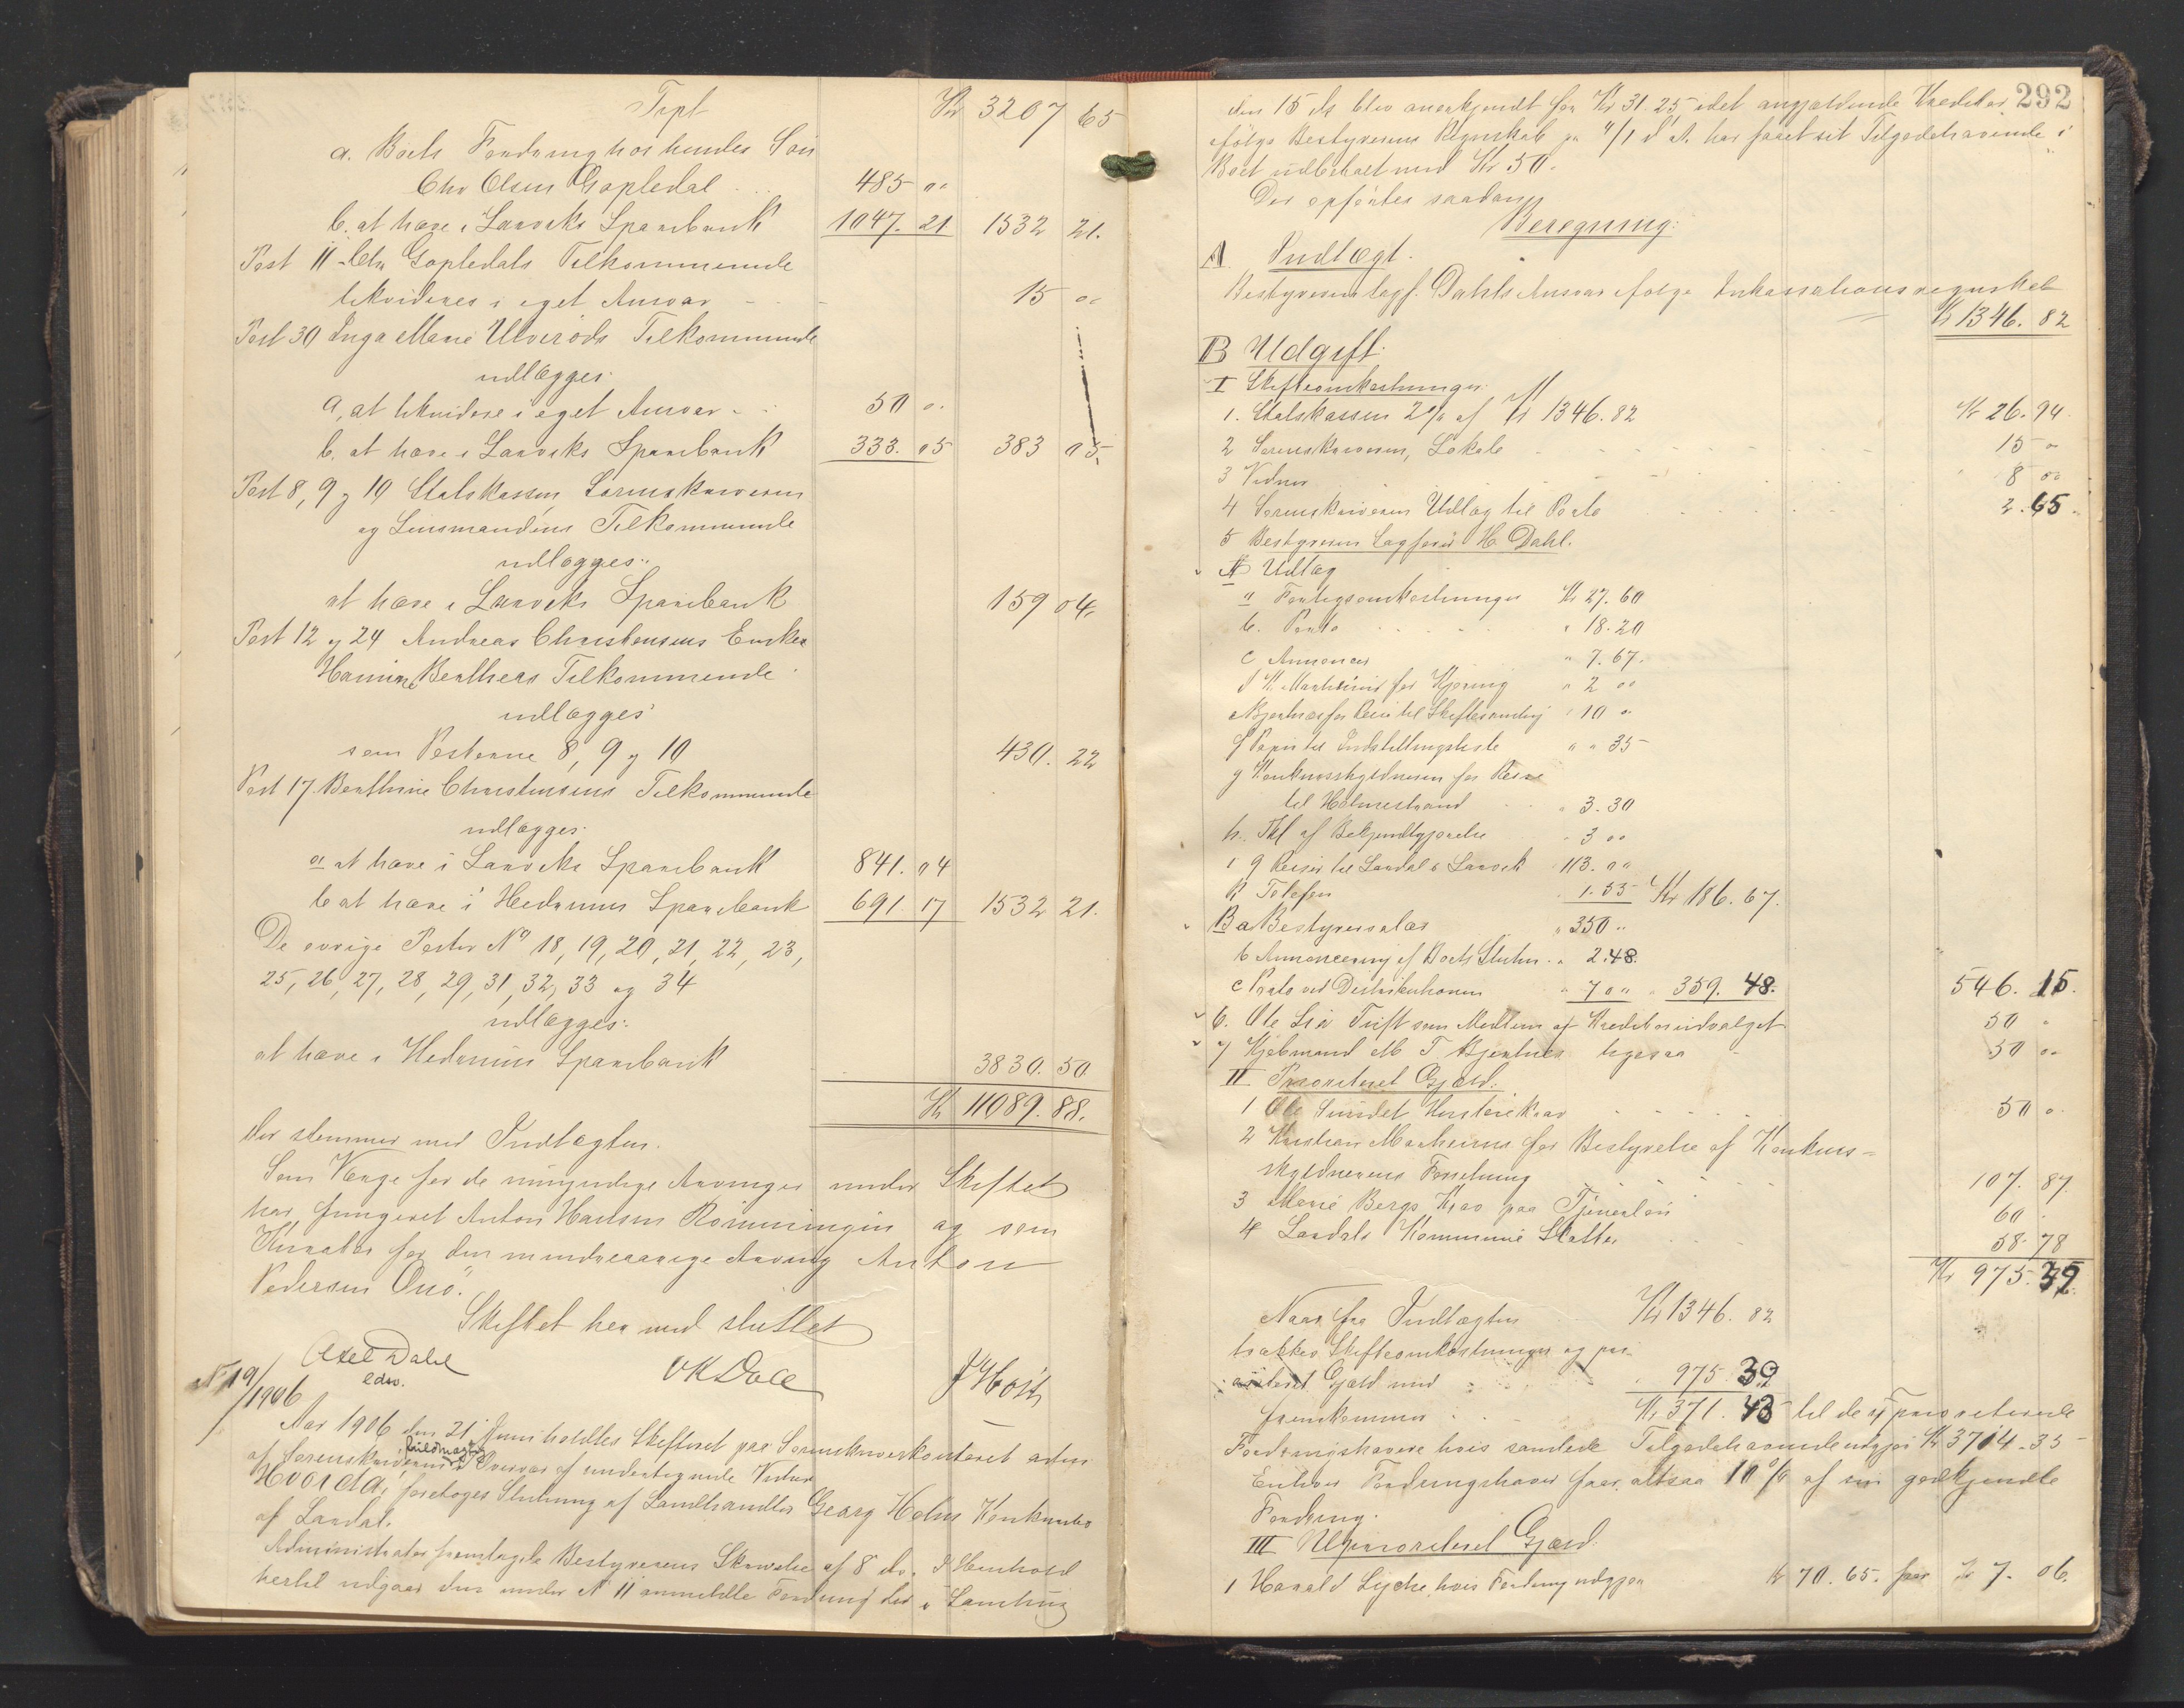 Trpt Kr 3207 65
a. Boets Fordring hos hendes Søn
Chr Olsen Gopledal 485 00
b. at hæve i Laurviks Sparebank 1047. 21 1532 21.
Post 11 Chr Gopledals Tilkommende
likvideres i eget Ansvar 15 00
Post 30 Inga Marie Ulverøds Tilkommende
udlægges:
a, at likvidere i eget Ansvar 50 0.
b. at hæve i Laurviks Sparebank 333. 05 383 05.
Post 8, 9 og 10 Statskassen, Sorenskriveren
og Lensmandens Tilkommende
udlægges:
at hæve i Laurviks Sparebank 159 04.
Post 12 og 24 Andreas Christensens Enke
Hamine Bertheas Tilkommende
udlægges
som Posterne 8, 9 og 10 430. 22
Post 17. Berthine Christensens Tilkommende
udlægges:
a at hæve i Laurviks Sparebank 841. 04
b at hæve i Hedrums Sparebank 691. 17 1532 21.
De øvrige Poster No 18, 19, 20, 21, 22, 23,
25, 26, 27, 28, 29, 31, 32, 33 og 34
udlægges:
at hæve i Hedrums Sparebank 3830. 50
Kr 11089. 88.
der stemmer med Indtægten.
Som Værge for de umyndige Arvinger under Skiftet
har fungeret Anton Hansen Rønningen og som
Kurator for den mindreaarige Arving Anton
Pedersen Ono.
Skiftet hermed sluttet
Axel Dahl
edsv.
OK Dole
J Høst
N 19/1906
Aar 1906 den 21 Juni holdtes Skifteret paa Sorenskriverkontoret
af Sorenskriverens fuldmægtig i Overvær af undertegnede Vidner
Hvorda, foretoges Slutning af Landhandler Georg Holms Konkursbo
af Laardal.
Administrator fremlagde Bestyrerens Skrivelse af 8 ds. I Henhold
hertil udgaar den under N 11 anmeldte Fordring der i Samling
292
den 15 ds blev anerkjendt for Kr 31. 25, idet angjældende Kreditor
ifølge Bestyrerens Regnskab pr 4/1 d A. har faaet sit Tilgodehavende i
Boet udbetalt med Kr 50.
Der opførtes saadan
Beregning:
A. Indtægt.
Bestyreren sagf. Dahls Ansvar ifølge Inkassationsregnskab
Kr 1346. 82
B Udgift.
I Skifteomkostninger.
1. Statskassen 2% af Kr 1346. 82 Kr 26. 94.
2 Sorenskriveren, Lokale 15 0
3 Vidner 8 00
4 Sorenskriverens Udlæg til Porto 2. 65.
5 Bestyreren Sagfører H. Dahl.
A Udlæg
a Forlegsomkostninger Kr 27. 60
b. Porto " 18. 20
c Annoncer " 7. 67.
d for Kjøring " 2 00
for Reise til Skiftesamling " 10 0
f Papir til Indstillingsliste " " 35
g Konkursskyldneren for Reise
til Holmestrand " 3. 30
h. Tkl af Bekjendtgjørelse " 3 00
i 9 Reiser til Laardal & Laurvik 113. 00
k Telefon 1. 55 Kr 186. 67.
B a Bestyrersalær " 350 ..
b Annoncering af Boets Slutn. " 2. 48.
c Porto ved Distributionen " 7 0 " " 359. 48. 546. 15.
6. Ole Lia Tuft som Medlem af Kreditorudvalget 50 "
7 Kjøbmand ligesaa 50 00
II Prioriteret Gjæld.
1 Ole Sundet Husleiekrav 50 0.
2 Kristian for Bestyrelse af Konkurs=
skyldnerens Forretning 107. 87.
3 Marie Bergs Krav paa Tjenerløn 60 .
4 Laardals Kommune Skatter 58. 78
Kr 975. 39.
Naar fra Indtægten Kr 1346. 82
trækkes Skifteomkostninger og pri-
oriteret Gjæld med 975. 39
fremkommer Kr 371. 43 til de upprioriterede
Fordringshavere hvis samlede Tilgodehavende udgjør Kr 3714. 35
Enhver Fordringshaver faar altsaa 10 % af sin godkjendte
Fordring.
III Uprioriteret Gjæld.
1 Harald Lyche hvis Fordring udgjør Kr 70. 65. faar Kr 7. 06.